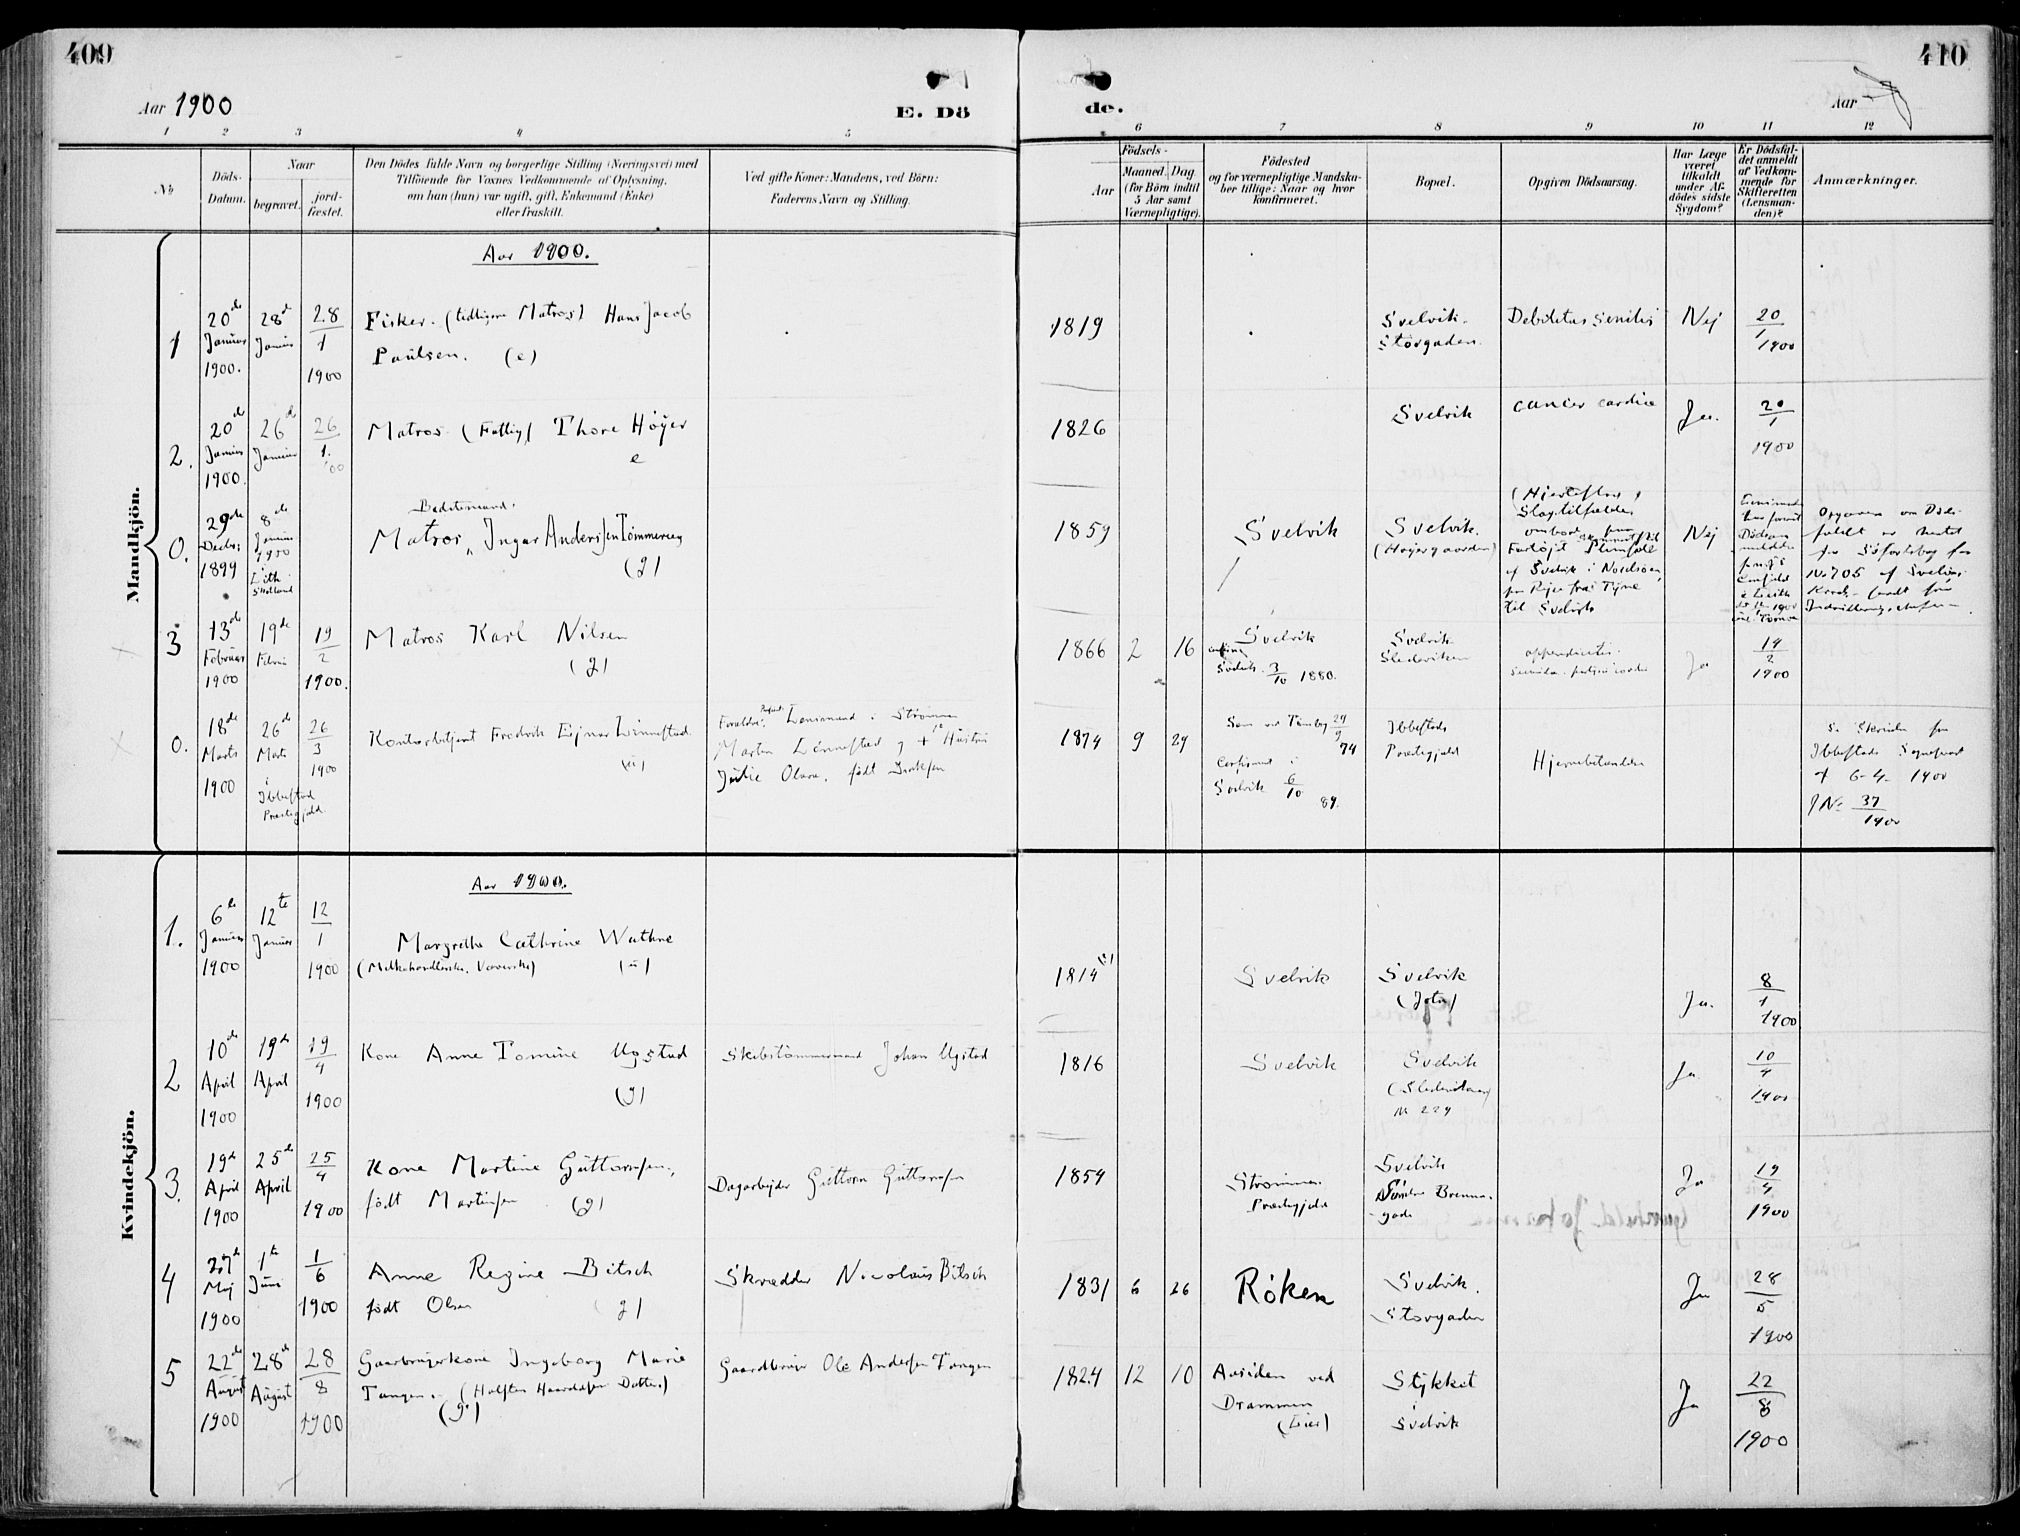 409
410
Aar 1900
E. Dö
de.
Aar
1 2 3 4 5 6 7 8 9 10 11 12
No
Döds-
Datum.
Naar
begravet.
jord-
fæstet.
Den Dödes fulde Navn og borgerlige Stilling (Næringsvei) med
Tilföiende for Voxnes Vedkommende af Oplysning,
om han (hun) var ugift, gift, Enkemand (Enke)
eller fraskilt.
Ved gifte Koner: Mandens, ved Börn:
Faderens Navn og Stilling.
Födsels-
Aar
Maaned. Dag
(for Börn indtil
5 Aar samt
Værnepligtige).
Födested
og for værnepligtige Mandska-
ber tillige: Naar og hvor
konfirmeret.
Bopæl.
Opgiven Dödsaarsag.
Har Læge
været
tilkaldt
under Af-
dödes sidste
Sygdom?
Er Dödsfal-
det anmeldt
af Vedkom-
mende for
Skifteretten
(Lensman-
den)?
Anmærkninger.
Mandkjön.
Aar 1900.
1
20de
Januar
1900.
28d
Januar
28
1
1900
Fisker. (tidligere Matros) Hans Jacob
Paulsen. (e)
1819
Svelvik.
Storgaden.
Debilitas senilis
Nej
20
1
1900
2.
20de
Januar
1900.
26d
Januar
26
1.
'00
Matros (Fattig) Thore Höyer
e
1826
Svelvik
cancer cardiæ
Ja.
20
1
1900
0.
29de
Decbr
1899
8de
Januar
1900
Leith
Skotland
Bedstemand.
Matros Ingar Andersen Tömmeraas
(g)
1859
Svelvik
Svelvik.
(Høiergaarden)
(Hjerteslag)
Slagtilfælde
ombord paa
af Svelvik i Nordsöen,
paa Rejse fra Tyne
til Svelvik
Nej
Opgaven om Döds-
faldet er hentet
No 705 af Svelvik
3
13de
Februar
1900
19de
Februar
19
2
1900.
Matros Karl Nilsen
(g)
1866 2 16
Svelvik
Svelvik 3/10 1880.
Svelvik
Sledeviken
appendicitis.
Ja
14
2
1900
0.
18de
Marts
1900
26de
Marts
i
Ibbestad
Præstegjeld.
26
3
1900
Kontorbetjent Fredrik Ejnar Linnestad
(u)
Forældre: Lensmand i Strömm
1874 9 29
confirmert i
Svelvik 6/10 89.
Ibbestads
Præstegjeld
Hjernebetændelse
Se Skrivelse fra
Ibbestads Sognepræst
af 6-4- 1900
J No 37
1900
Kvindekjön.
Aar 1900.
1.
6te
Januar
1900
12te
Januar
12
1
1900
Margrethe Cathrine Wathne
(Melkehandlerske, Væverske) (u)
1814
Svelvik
Svelvik
Ja.
8
1
1900
2
10de
April
1900
19de
April
19
4
1900
Kone Anne Tomine Ugstad
(g)
Skibstömmermand Johan Ugstad
1816
Svelvik
Svelvik
(Sledeviken)
N 229
Ja
10
4
1900
3.
19de
April
1900
25de
April
25
4
1900
Kone Martine Guttormsen,
födt Martinsen (g)
Dagarbejder Guttorm Guttormsen
1854
Strömmens
Præstegjeld
Svelvik
Søndre Brenna-
gade
Ja
19
4
1900
4
27de
Maj
1900
1te
Juni
1
6
1900
Anne Regine Bitsch
födt Olsen (g)
Skrædder Nicolaus Bitsch
1831 6 26
Röken
Svelvik.
Storgaden
Ja
28
5
1900
5
22de
August
1900
28de
August
28
8
1900
Gaardbrugerkone Ingeborg Marie
Tangen. (Halfsten Haardsens Datter.)
(g)
Gaardbruger Ole Andersen Tangen
1824 12 10
Aasiden ved
Drammen
(Lier)
Stykket
Svelvik
Ja
22
8
1900